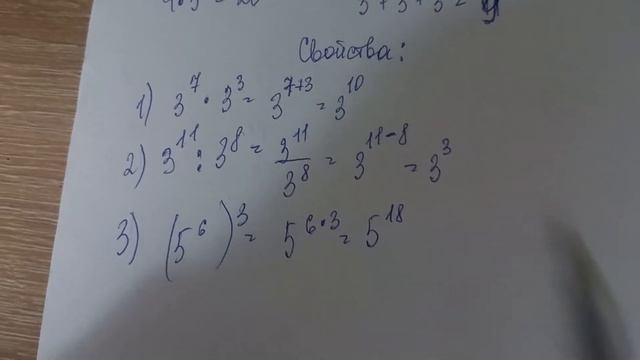 Свойства:
1) 3⁷ · 3³ = 3⁷⁺³ = 3¹⁰
2) 3¹¹ : 3⁸ = 3¹¹/3⁸ = 3¹¹⁻⁸ = 3³
3) (5⁶)³ = 5⁶·³ = 5¹⁸